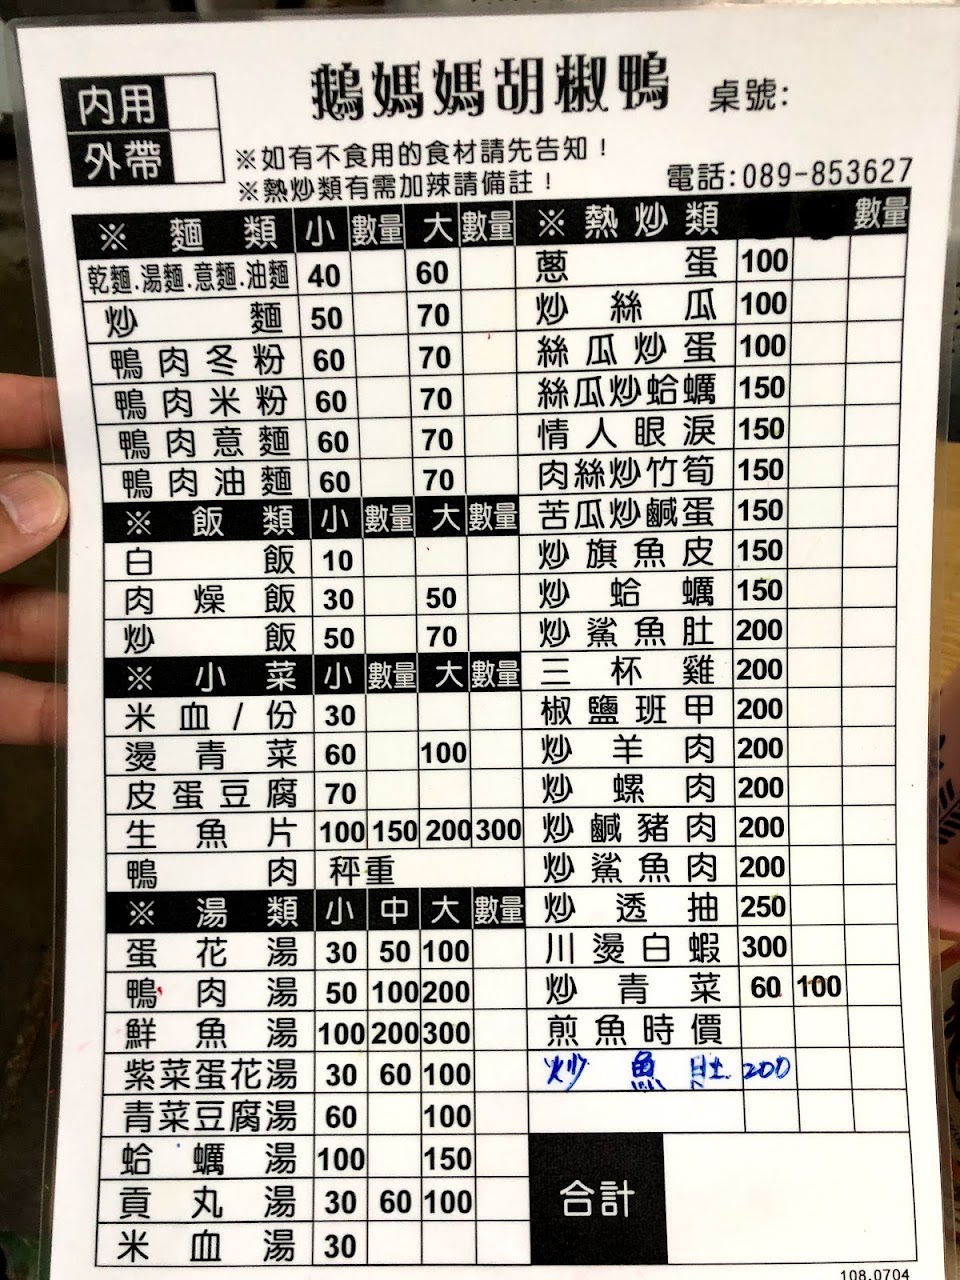 鵝媽媽胡椒鴨 桌號:
內用
外帶
※如有不食用的食材請先告知！
※熱炒類有需加辣請備註！
電話:089-853627
※ 麵類 小 數量 大 數量
乾麵.湯麵.意麵.油麵 40 60
炒麵 50 70
鴨肉冬粉 60 70
鴨肉米粉 60 70
鴨肉意麵 60 70
鴨肉油麵 60 70
※ 飯類 小 數量 大 數量
白飯 10
肉燥飯 30 50
炒飯 50 70
※ 小菜 小 數量 大 數量
米血/份 30
燙青菜 60 100
皮蛋豆腐 70
生魚片 100 150 200 300
鴨肉 秤重
※ 湯類 小 中 大 數量
蛋花湯 30 50 100
鴨肉湯 50 100 200
鮮魚湯 100 200 300
紫菜蛋花湯 30 60 100
青菜豆腐湯 60 100
蛤蠣湯 100 150
貢丸湯 30 60 100
米血湯 30
※ 熱炒類 數量
蔥蛋 100
炒絲瓜 100
絲瓜炒蛋 100
絲瓜炒蛤蠣 150
情人眼淚 150
肉絲炒竹筍 150
苦瓜炒鹹蛋 150
炒旗魚皮 150
炒蛤蠣 150
炒鯊魚肚 200
三杯雞 200
椒鹽班甲 200
炒羊肉 200
炒螺肉 200
炒鹹豬肉 200
炒鯊魚肉 200
炒透抽 250
川燙白蝦 300
炒青菜 60 100
煎魚時價
炒魚肚 200
合計
108.0704